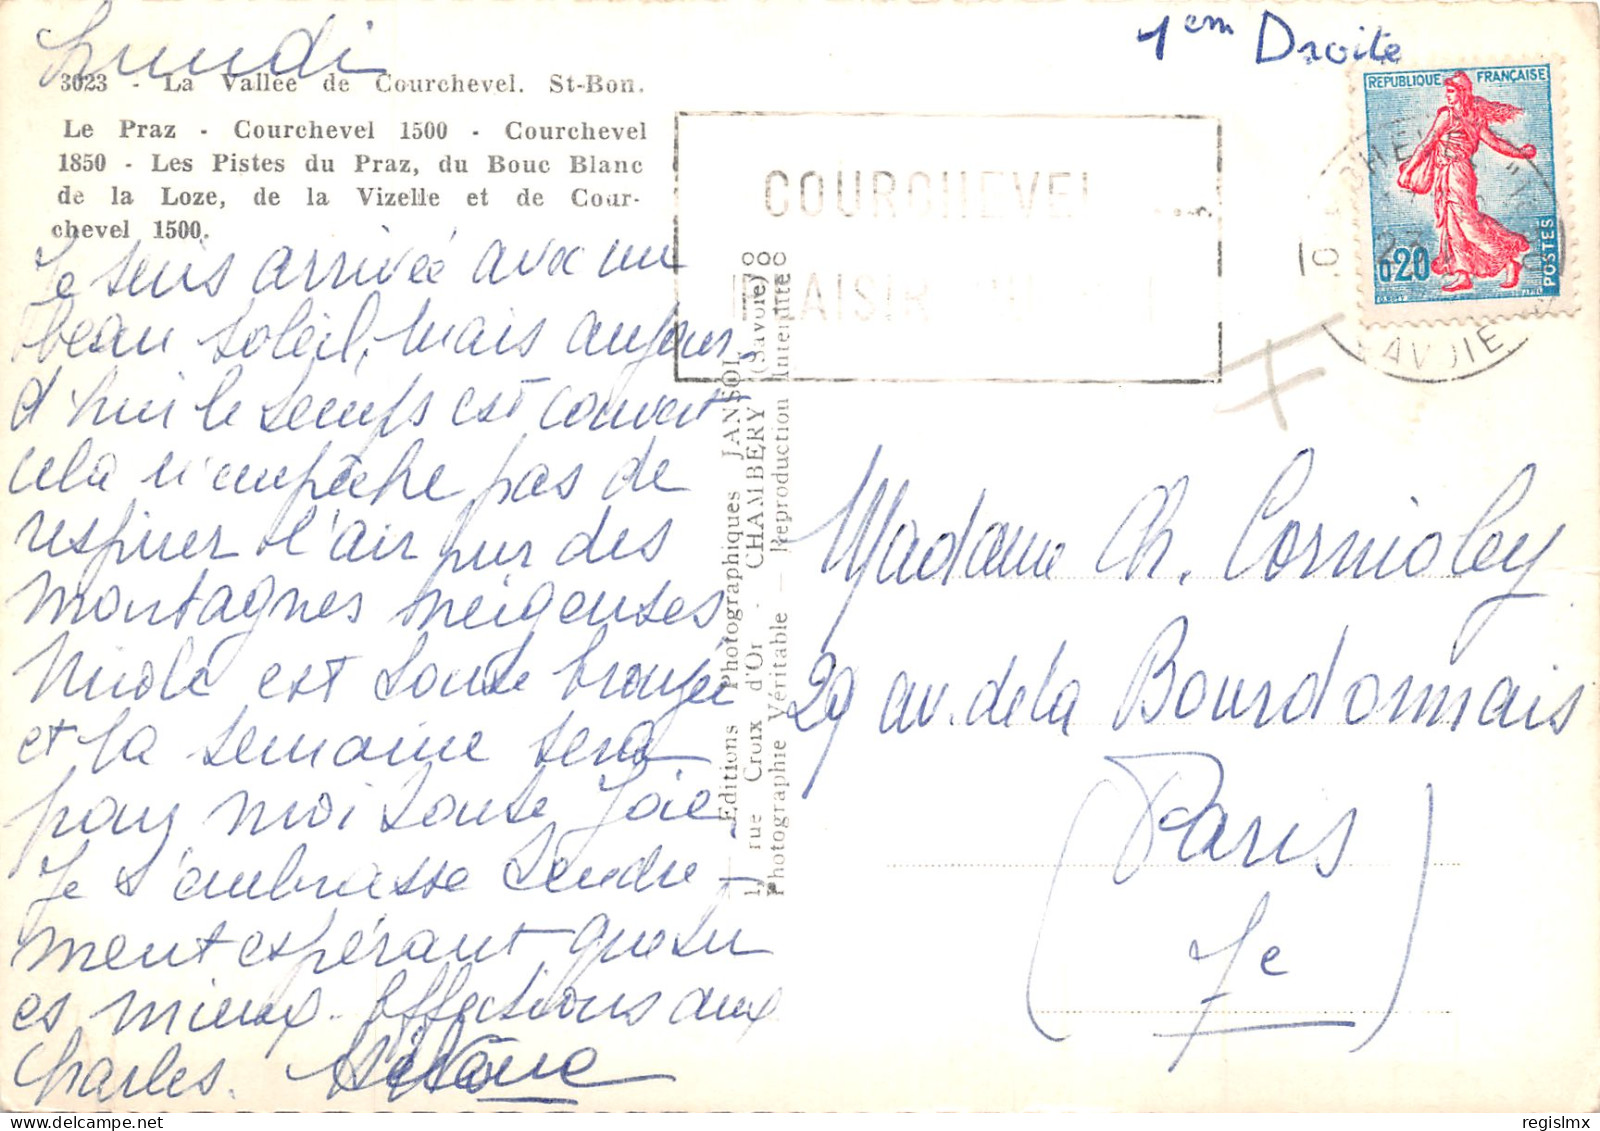 Lundi
3023 - La Vallée de Courchevel. St-Bon.
Le Praz - Courchevel 1500 - Courchevel
1850 - Les Pistes du Praz, du Bouc Blanc
de la Loze, de la Vizelle et de Cour-
chevel 1500.
Je suis arrivée avec un
beau soleil, mais aujour-
d'hui le temps est couvert
cela n'empêche pas de
respirer l'air pur des
montagnes neigeuses
Nicole est toute bronzée
et la semaine sera
pour moi toute joie
Je t'embrasse tendre-
ment espérant que tu
es mieux. Affections aux
Charles.
Editions Photographiques JANSOL
11, rue Croix d'Or - CHAMBERY (Savoie)
Photographie Véritable — Reproduction Interdite
1em Droite
COURCHEVEL
REPUBLIQUE FRANÇAISE
0,20
POSTES
SAVOIE
Madame Ch. Cornioley
29 av. de la Bourdonnais
Paris
7e
regislmx